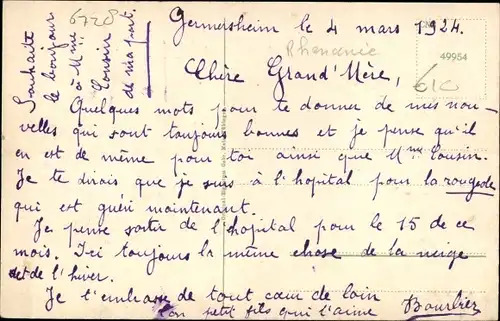 Germersheim le 4 mars 1924.
Rhénanie
49954
6728
Souhaite
le bonjour
à Mme
Cousin
de ma part.
Chère Grand'Mère,
Quelques mots pour te donner de mes nou-
velles qui sont toujours bonnes et je pense qu'il
en est de même pour toi ainsi que Mme Cousin.
Je te dirais que je suis à l'hopital pour la rougeole
qui est guéri maintenant.
Je pense sortir de l'hopital pour le 15 de ce
mois. Ici toujours la même chose de la neige
et de l'hiver.
Je t'embrasse de tout cœur de loin
Ton petit fils qui t'aime Bourlier